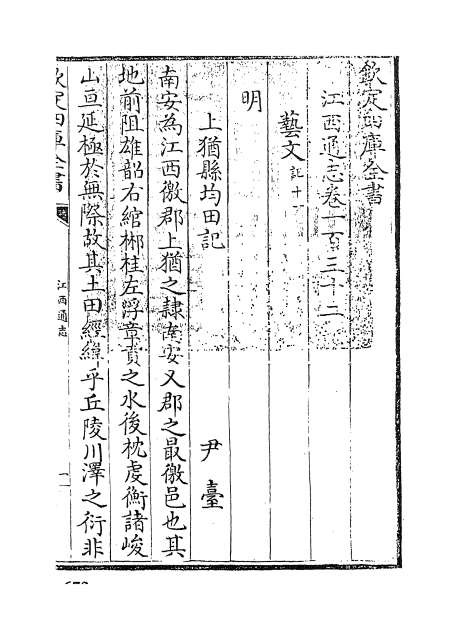 欽定四庫全書
江西通志卷一百三十二
藝文記十一
明
上猶縣均田記　尹臺
南安為江西徼郡上猶之隸南安又郡之最徼邑也其
地前阻雄韶右綰郴桂左浮章貢之水後枕虔衡諸峻
山亘延極於無際故其土田經緯乎丘陵川澤之衍非
欽定四庫全書
江西通志
一